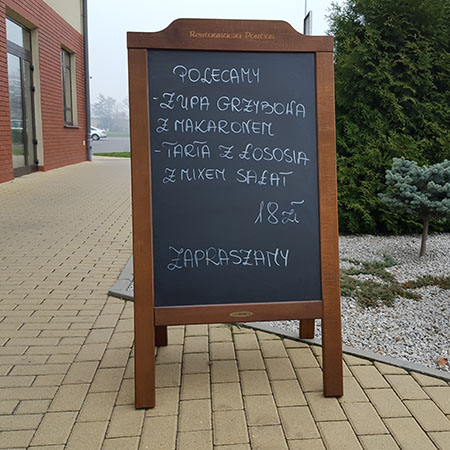 Restauracja
POLECAMY
- ZUPA GRZYBOWA
Z MAKARONEM
- TARTA Z ŁOSOSIA
Z MIXEM SAŁAT
18 zł
ZAPRASZAMY